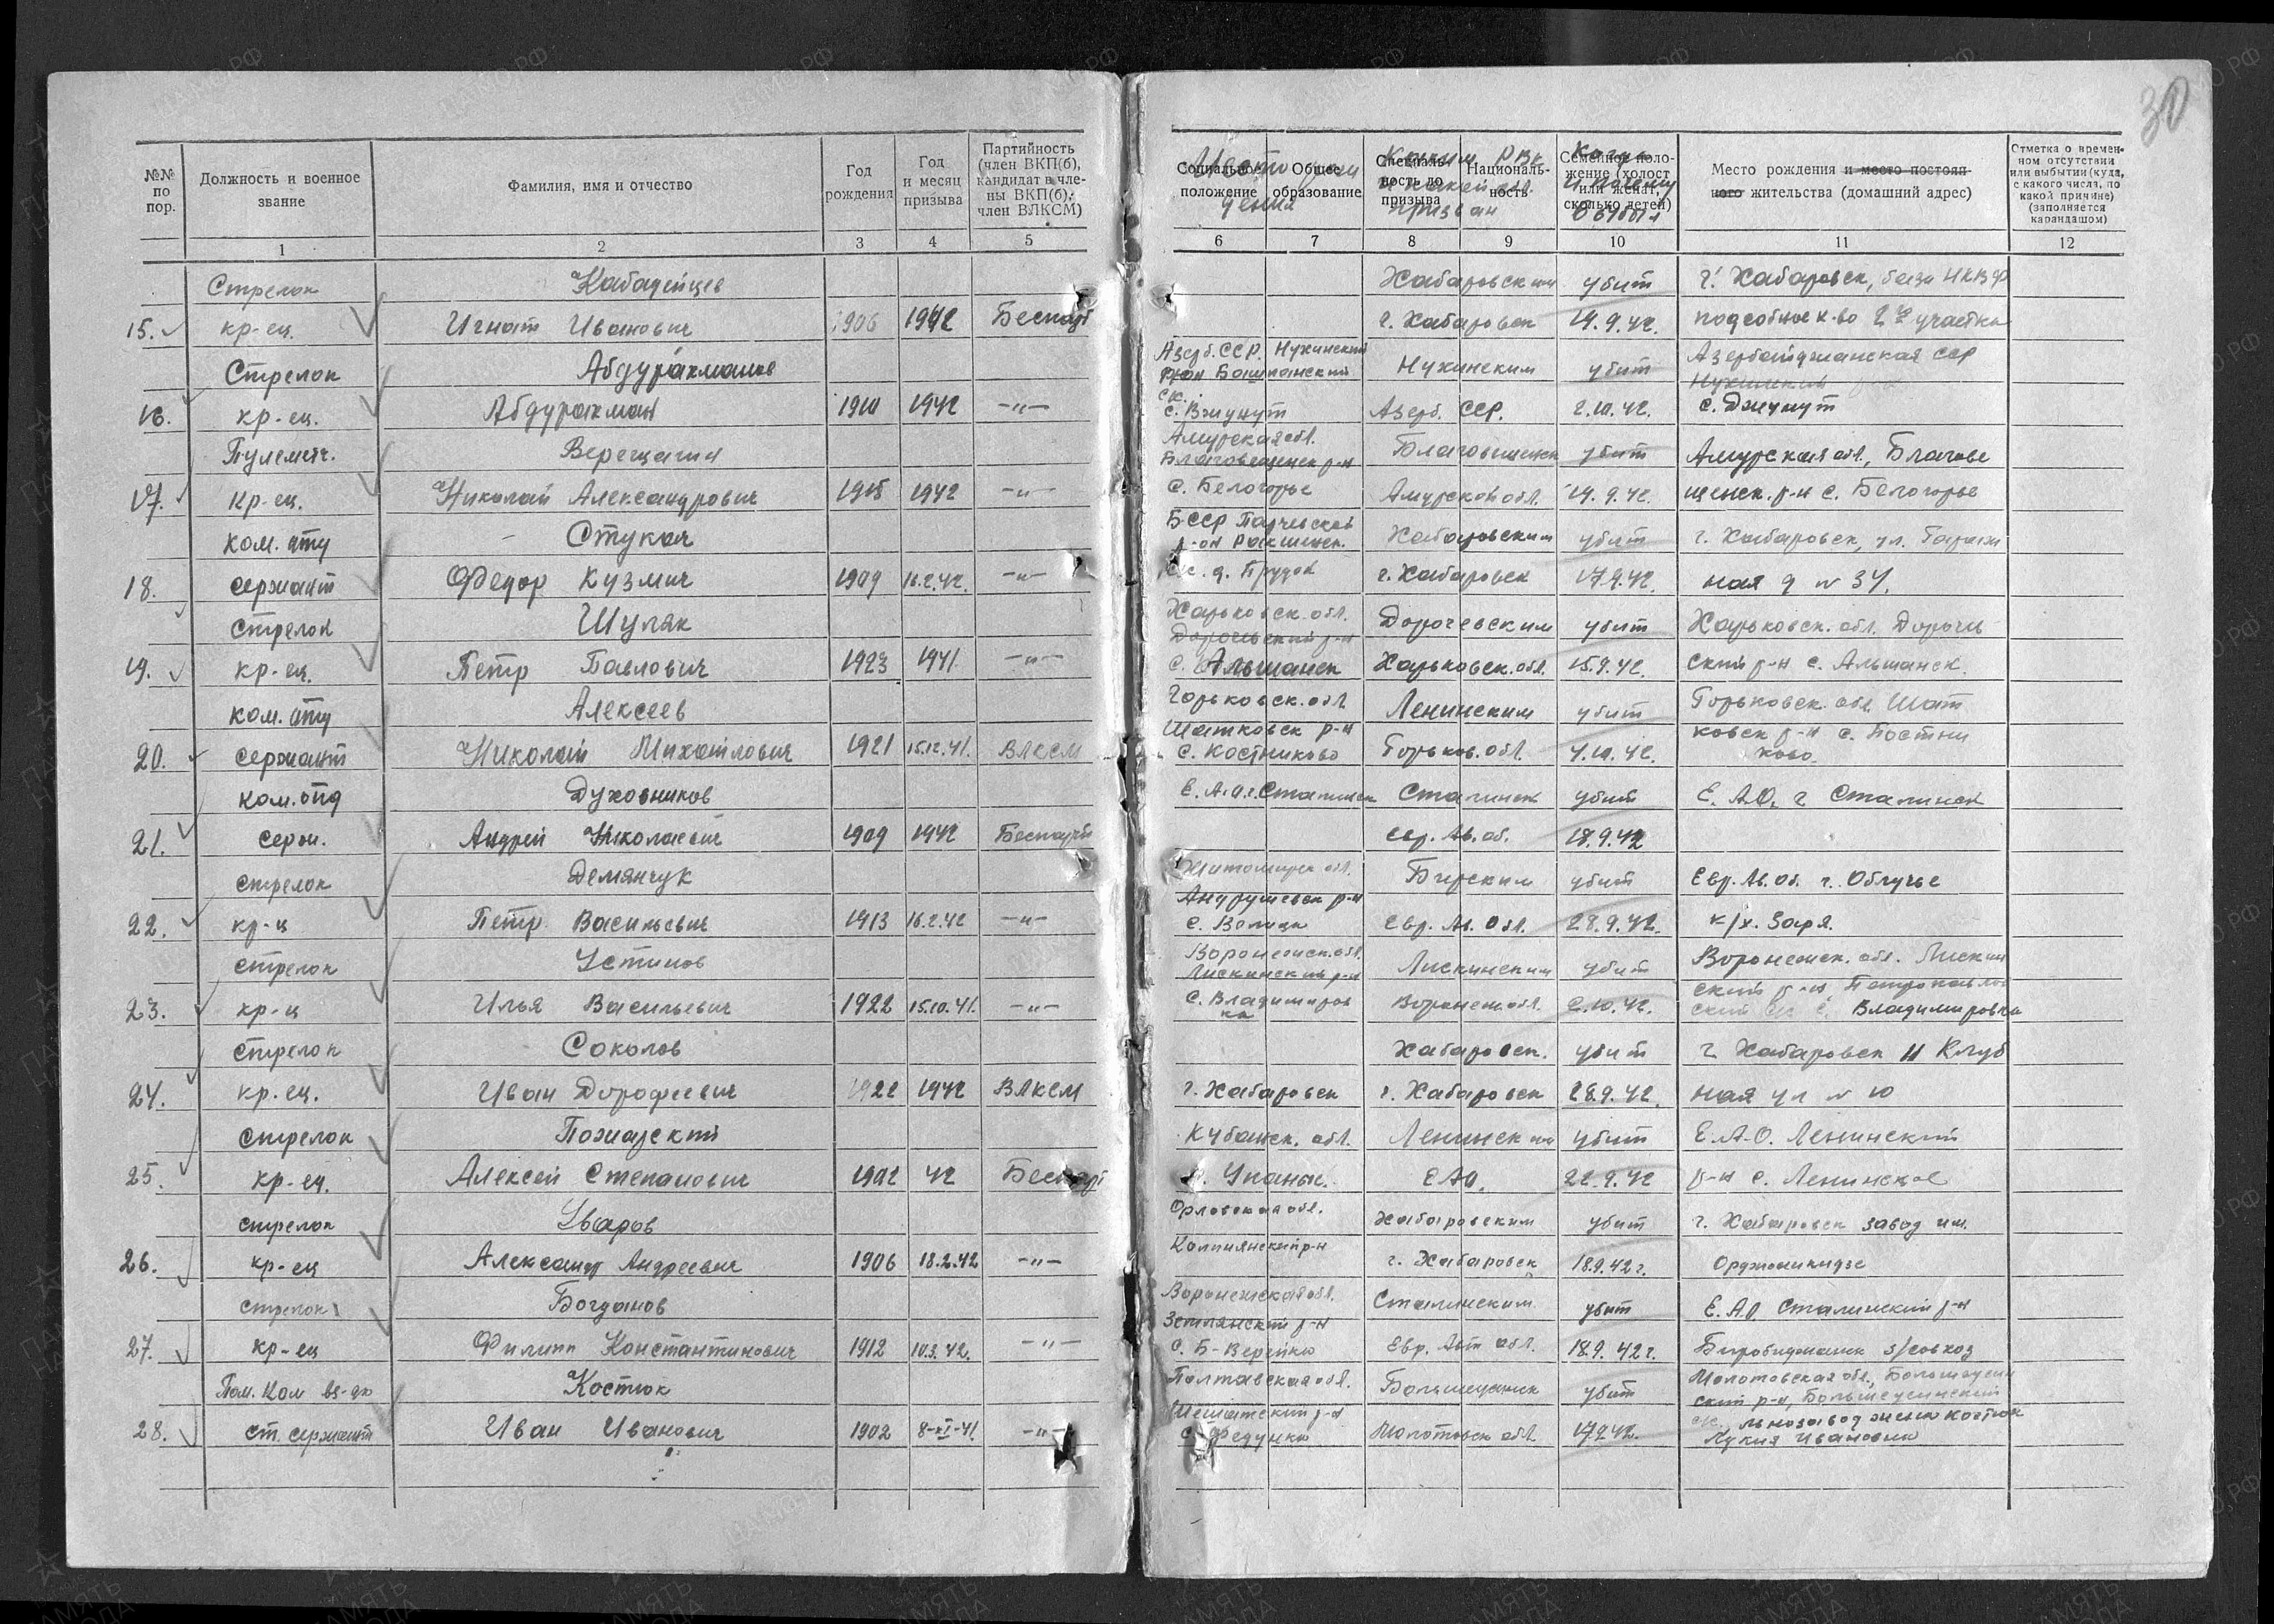 30
№№ по пор.
Должность и военное звание
Фамилия, имя и отчество
Год рождения
Год и месяц призыва
Партийность (член ВКП(б), кандидат в члены ВКП(б), член ВЛКСМ)
Социальное положение
Общее образование
Специальность до призыва
Национальность
Семейное положение (холост или женат, сколько детей)
Место рождения и место постоянного жительства (домашний адрес)
Отметка о временном отсутствии или выбытии (куда, с какого числа, по какой причине) (заполняется карандашом)
Место рождения
Каким РВК и какой обл. призван
Когда и почему выбыл
1 2 3 4 5 6 7 8 9 10 11 12
Стрелок Кабадейцев Хабаровским убит г. Хабаровск, база НКВД
15. кр-ец. Игнат Иванович 1906 1942 Беспарт г. Хабаровск 14.9.42. подсобное х-во 2го участка
Азерб. ССР. Нухинский
Стрелок Абдурахманов р-он Нухинским убит Азербайджанская ССР
Нухинский
16. кр-ец. Абдурахман 1910 1942 -"- с. Азерб. ССР. 2.10.42. с. Джунут
Амурская обл.
Пулемётч. Верещагин Благовещенск р-н Благовещенск убит Амурская обл., Благове
17. кр-ец. Николай Александрович 1915 1942 -"- с. Белогорье Амурской обл. 14.9.42. щенск. р-н с. Белогорье
БССР Паричевской
ком. отд Стукач р-он Хабаровским убит г. Хабаровск, ул.
18. сержант Федор Кузмич 1909 16.2.42. -"- с/с. д. Прудок г. Хабаровск 17.9.42. ная д № 34.
Харьковск. обл.
Стрелок Шуляк р-н Дорочевским убит Харьковск. обл. Дорочев
19. кр-ец. Петр Павлович 1923 1941 -"- с. Альшанск Харьковск. обл. 15.9.42. ский р-н с. Альшанск
ком. отд Алексеев Горьковск. обл. Ленинским убит Горьковск. обл. Шат
Шатковск р-н ковск р-н с. Постни
20. сержант Николай Михайлович 1921 15.12.41. ВЛКСМ с. Костниково Горьков. обл. 4.10.42. ково.
ком. отд Духовников Е. А. о г. Сталинск Сталинск убит Е. А.О. г Сталинск
21. серж. Андрей Николаевич 1909 1942 Беспартй Евр. Ав. об. 18.9.42
Стрелок Демянчук Житомирск обл. Бирским убит Евр. Ав. Об. г. Облучье
Андрушевск р-н
22. кр-ц Петр Васильевич 1913 16.2.42 -"- с. Евр. Ав. Обл. 28.9.42. к/х. Заря.
Воронежск. обл.
стрелок Устинов Лискинский р-н Лискинским убит Воронежск. обл. Лискин
ский р-н, Петропавлов
23. кр-ц Илья Васильевич 1922 15.10.41. -"- с. Владимиров Воронеж обл. 2.10.42. ский с/с с. Владимировка
ка
Стрелок Соколов Хабаровск. убит г. Хабаровск Клуб
24. кр.ец. Иван Дорофеевич 1922 1942 ВЛКСМ г. Хабаровск г. Хабаровск 28.9.42. ная ул № 10
Стрелок Пожарский Кубанск. обл. Ленинским убит Е.А.О. Ленинский
25. кр-ец. Алексей Степанович 1902 42 Беспарт ЕАО. 22.9.42 р-н с. Ленинское
стрелок Уваров Орловская обл. Хабаровским убит г. Хабаровск завод им.
Колпнянский р-н
26. кр-ец Александр Андреевич 1906 18.2.42 -"- г. Хабаровск 18.9.42 г. Орджоникидзе
стрелок Богданов Воронежская обл. Сталинским убит Е. А.О. Сталинский р-н
Землянский р-н
27. кр-ец Филипп Константинович 1912 10.3.42. -"- с. Б-Верейка Евр. Авт обл. 18.9.42 г. Биробиджанск з/совхоз
Пом. Ком вз-да Костюк Полтавская обл. Большеусинск убит Молотовская обл., Большеусин
Шишатский р-н ский р-н, Большеусинский
28. ст. сержант Иван Иванович 1902 8-XI-41. -"- с. Федунка Молотовск обл. 17.9.42. с/с, льнозавод жена Костюк
Ивановна